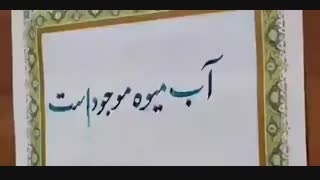 آب میوه موجود است